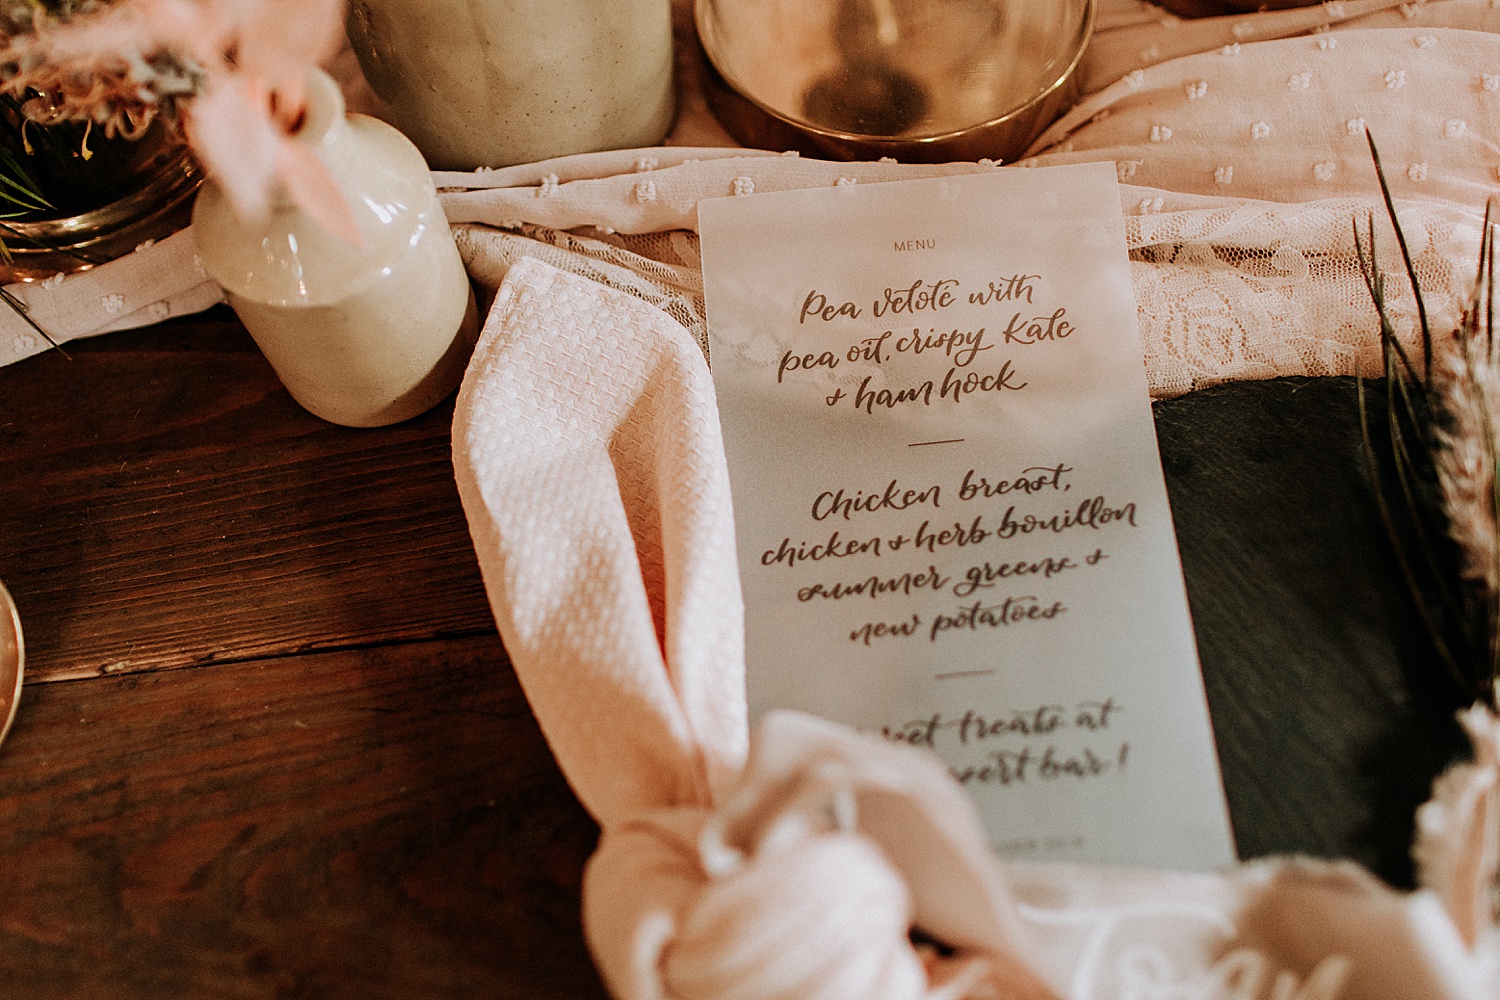 MENU
Pea velote with
pea oil, crispy kale
& ham hock
Chicken breast,
chicken & herb bouillon
summer greens &
new potatoes
treats at
bar!